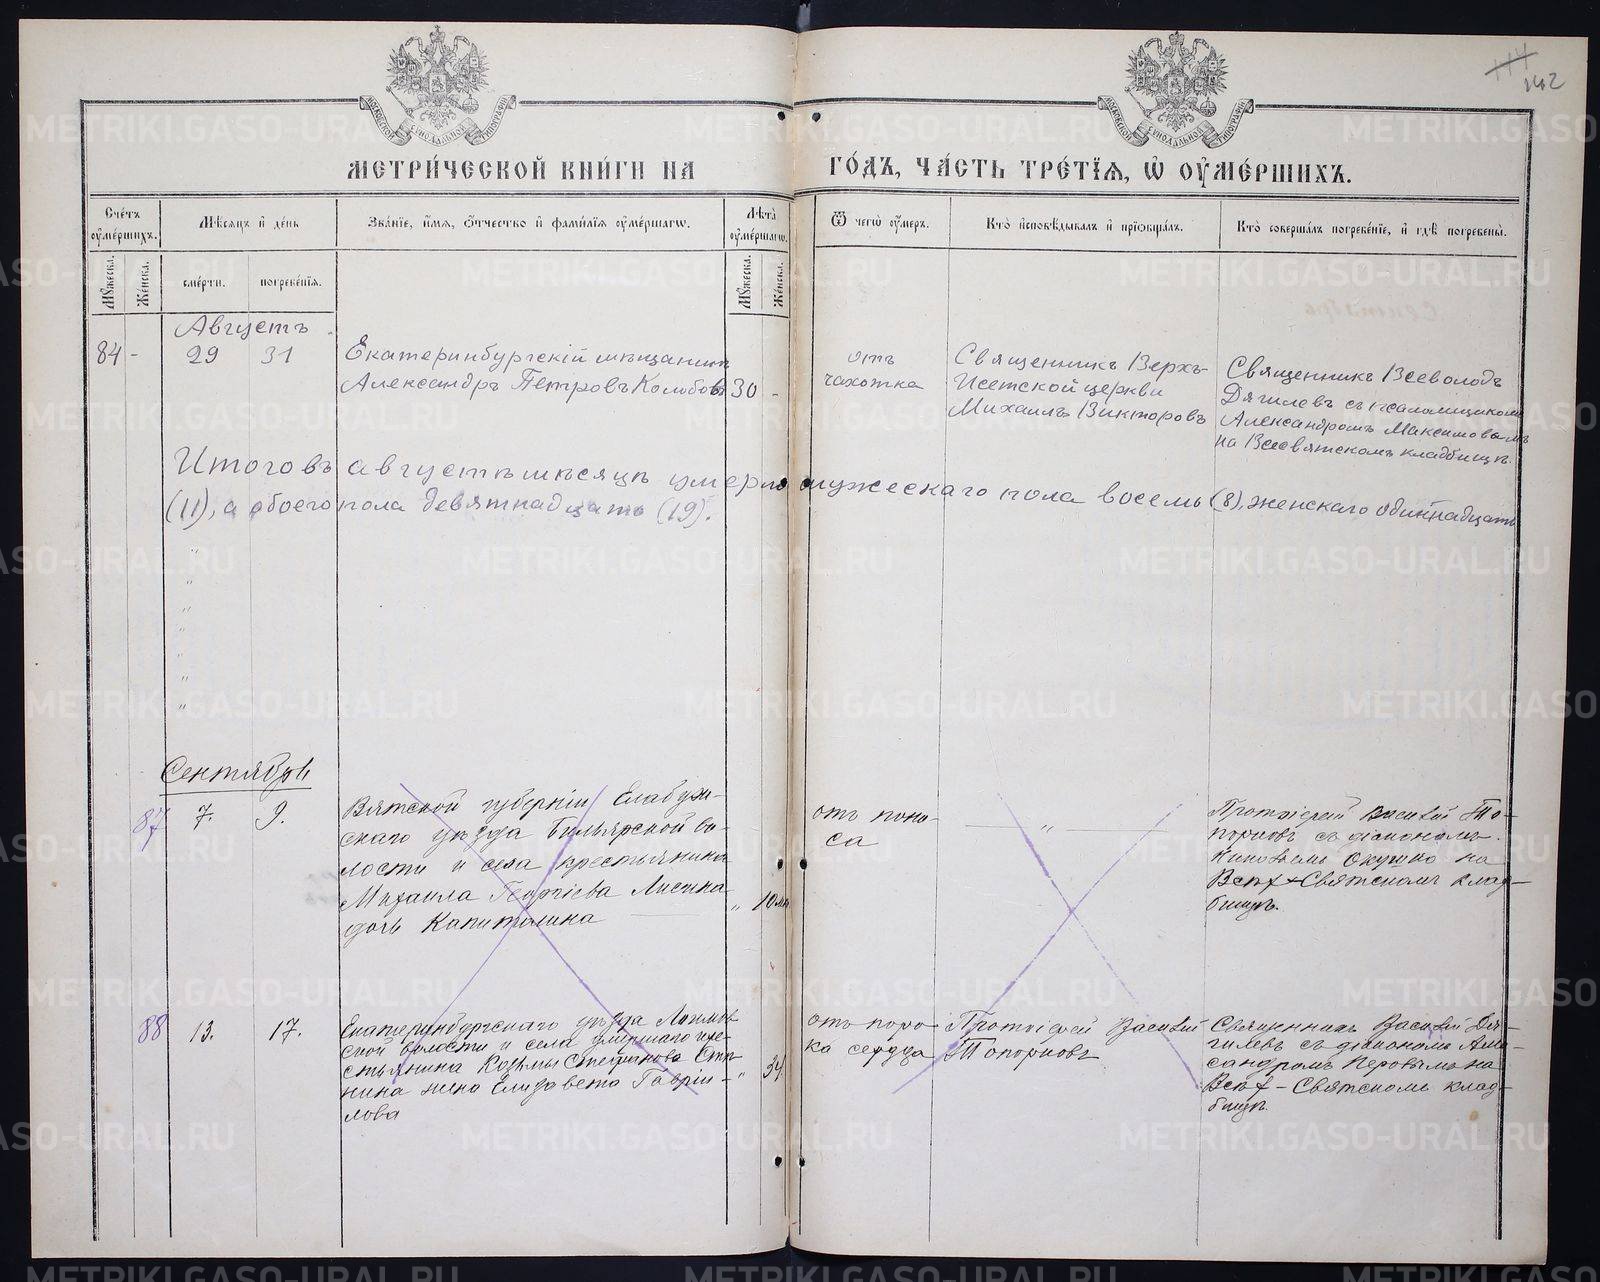 114
142
МЕТРИ́ЧЕСКОЙ КНИ́ГИ НА ГО́ДЪ, ЧА́СТЬ ТРЕ́ТЇѦ, Ѡ҆ ОУ҆МЕ́РШИХЪ.
Сче́тъ оу҆ме́ршихъ.
Мѣ́сяцъ и҆ де́нь
Зва́нїе, и҆́мѧ, ѻ҆́тчество и҆ фами́лїѧ оу҆ме́ршагѡ.
Лѣ́та оу҆ме́ршагѡ.
Ѿ чегѡ̀ оу҆́меръ.
Кто̀ и҆сповѣ́дывалъ и҆ прїѡбща́лъ.
Кто̀ соверша́лъ погребе́нїе, и҆ гдѣ̀ погребены̀.
Мꙋ́жеска.
Же́нска.
сме́рти.
погребе́нїѧ.
Мꙋ́жеска.
Же́нска.
Августъ
84 - 29 31
Екатеринбургскій мѣщанинъ
Александръ Петровъ Колобовъ 30 -
отъ
чахотка
Священникъ Верхъ-
Исетской церкви
Михаилъ Викторовъ
Священникъ Всеволодъ
Дягилевъ съ псаломщикомъ
Александромъ Максимовымъ
на Всесвятскомъ кладбищѣ.
Итого въ августѣ мѣсяцѣ умерло мужескаго пола восемь (8), женскаго одиннадцать
(11), а обоего пола девятнадцать (19).
Сентябрь
87 7. 9.
Вятской губерніи Елабуж-
скаго уѣзда Бильярской во-
лости и села крестьянина
Михаила Георгіева Лисина
дочь Капиталина
" 10 м.
отъ поно-
са
"
Протоіерей Василій То-
порковъ съ діакономъ
на
Всѣх-Святскомъ клад-
бищѣ.
88 13. 17.
Екатеринбургскаго уѣзда
ской волости и села умершаго кре-
стьянина Козьмы Степанова
жена Елизавета Гаврии-
лова
" 34.
отъ поро-
ка сердца
Протоіерей Василій
Топорковъ
Священникъ Василій Дя-
гилевъ съ діакономъ Але-
ксандромъ Перовымъ на
Всѣх-Святскомъ клад-
бищѣ.
METRIKI.GASO-URAL.RU